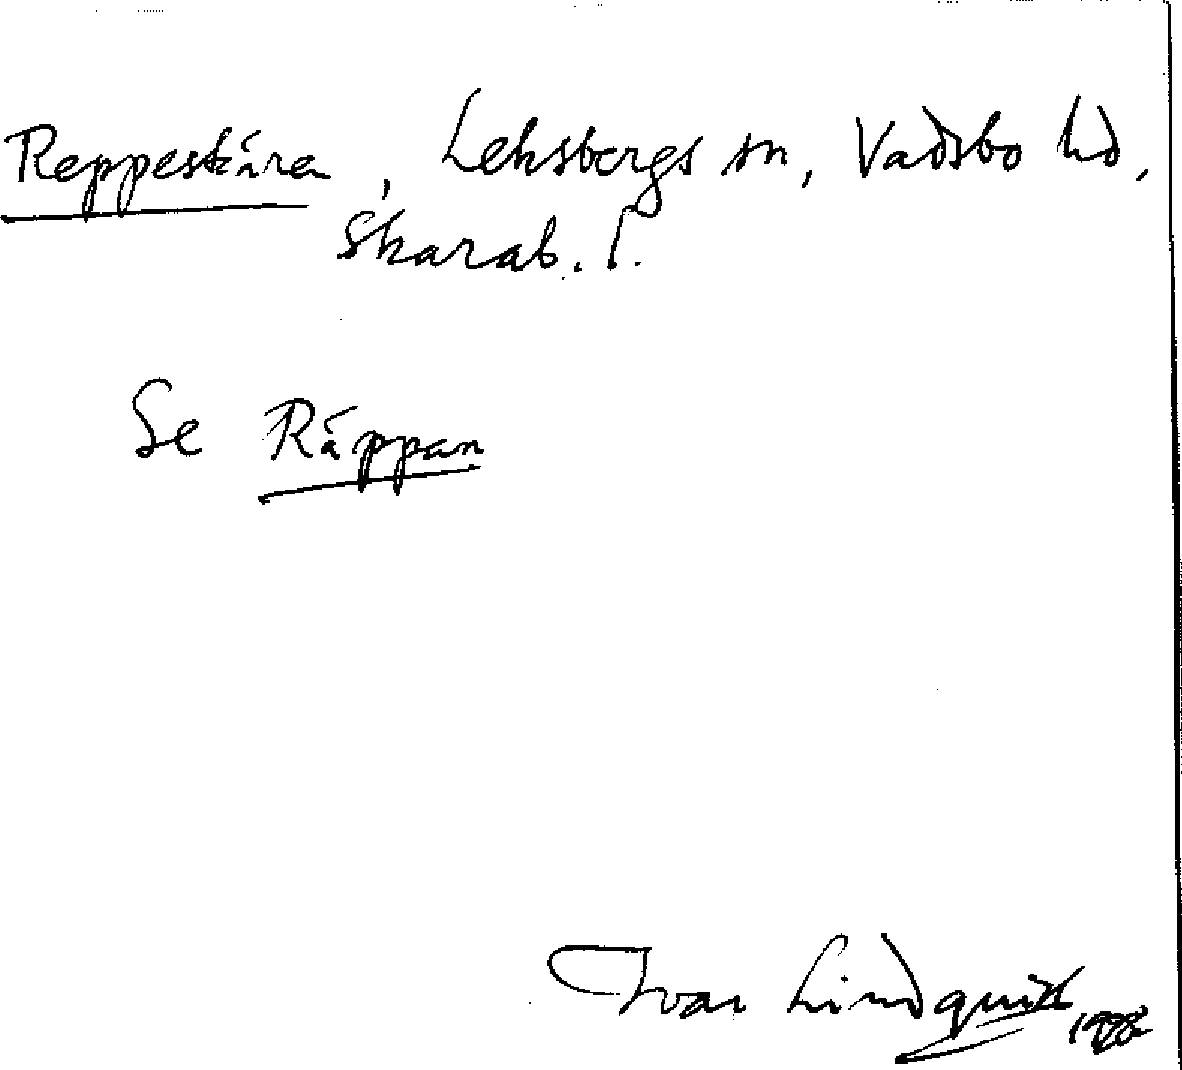 Reppeskära, Leksbergs sn, Vadsbo hd,
Skarab. l.
Se Räppan
Ivar Lindquist